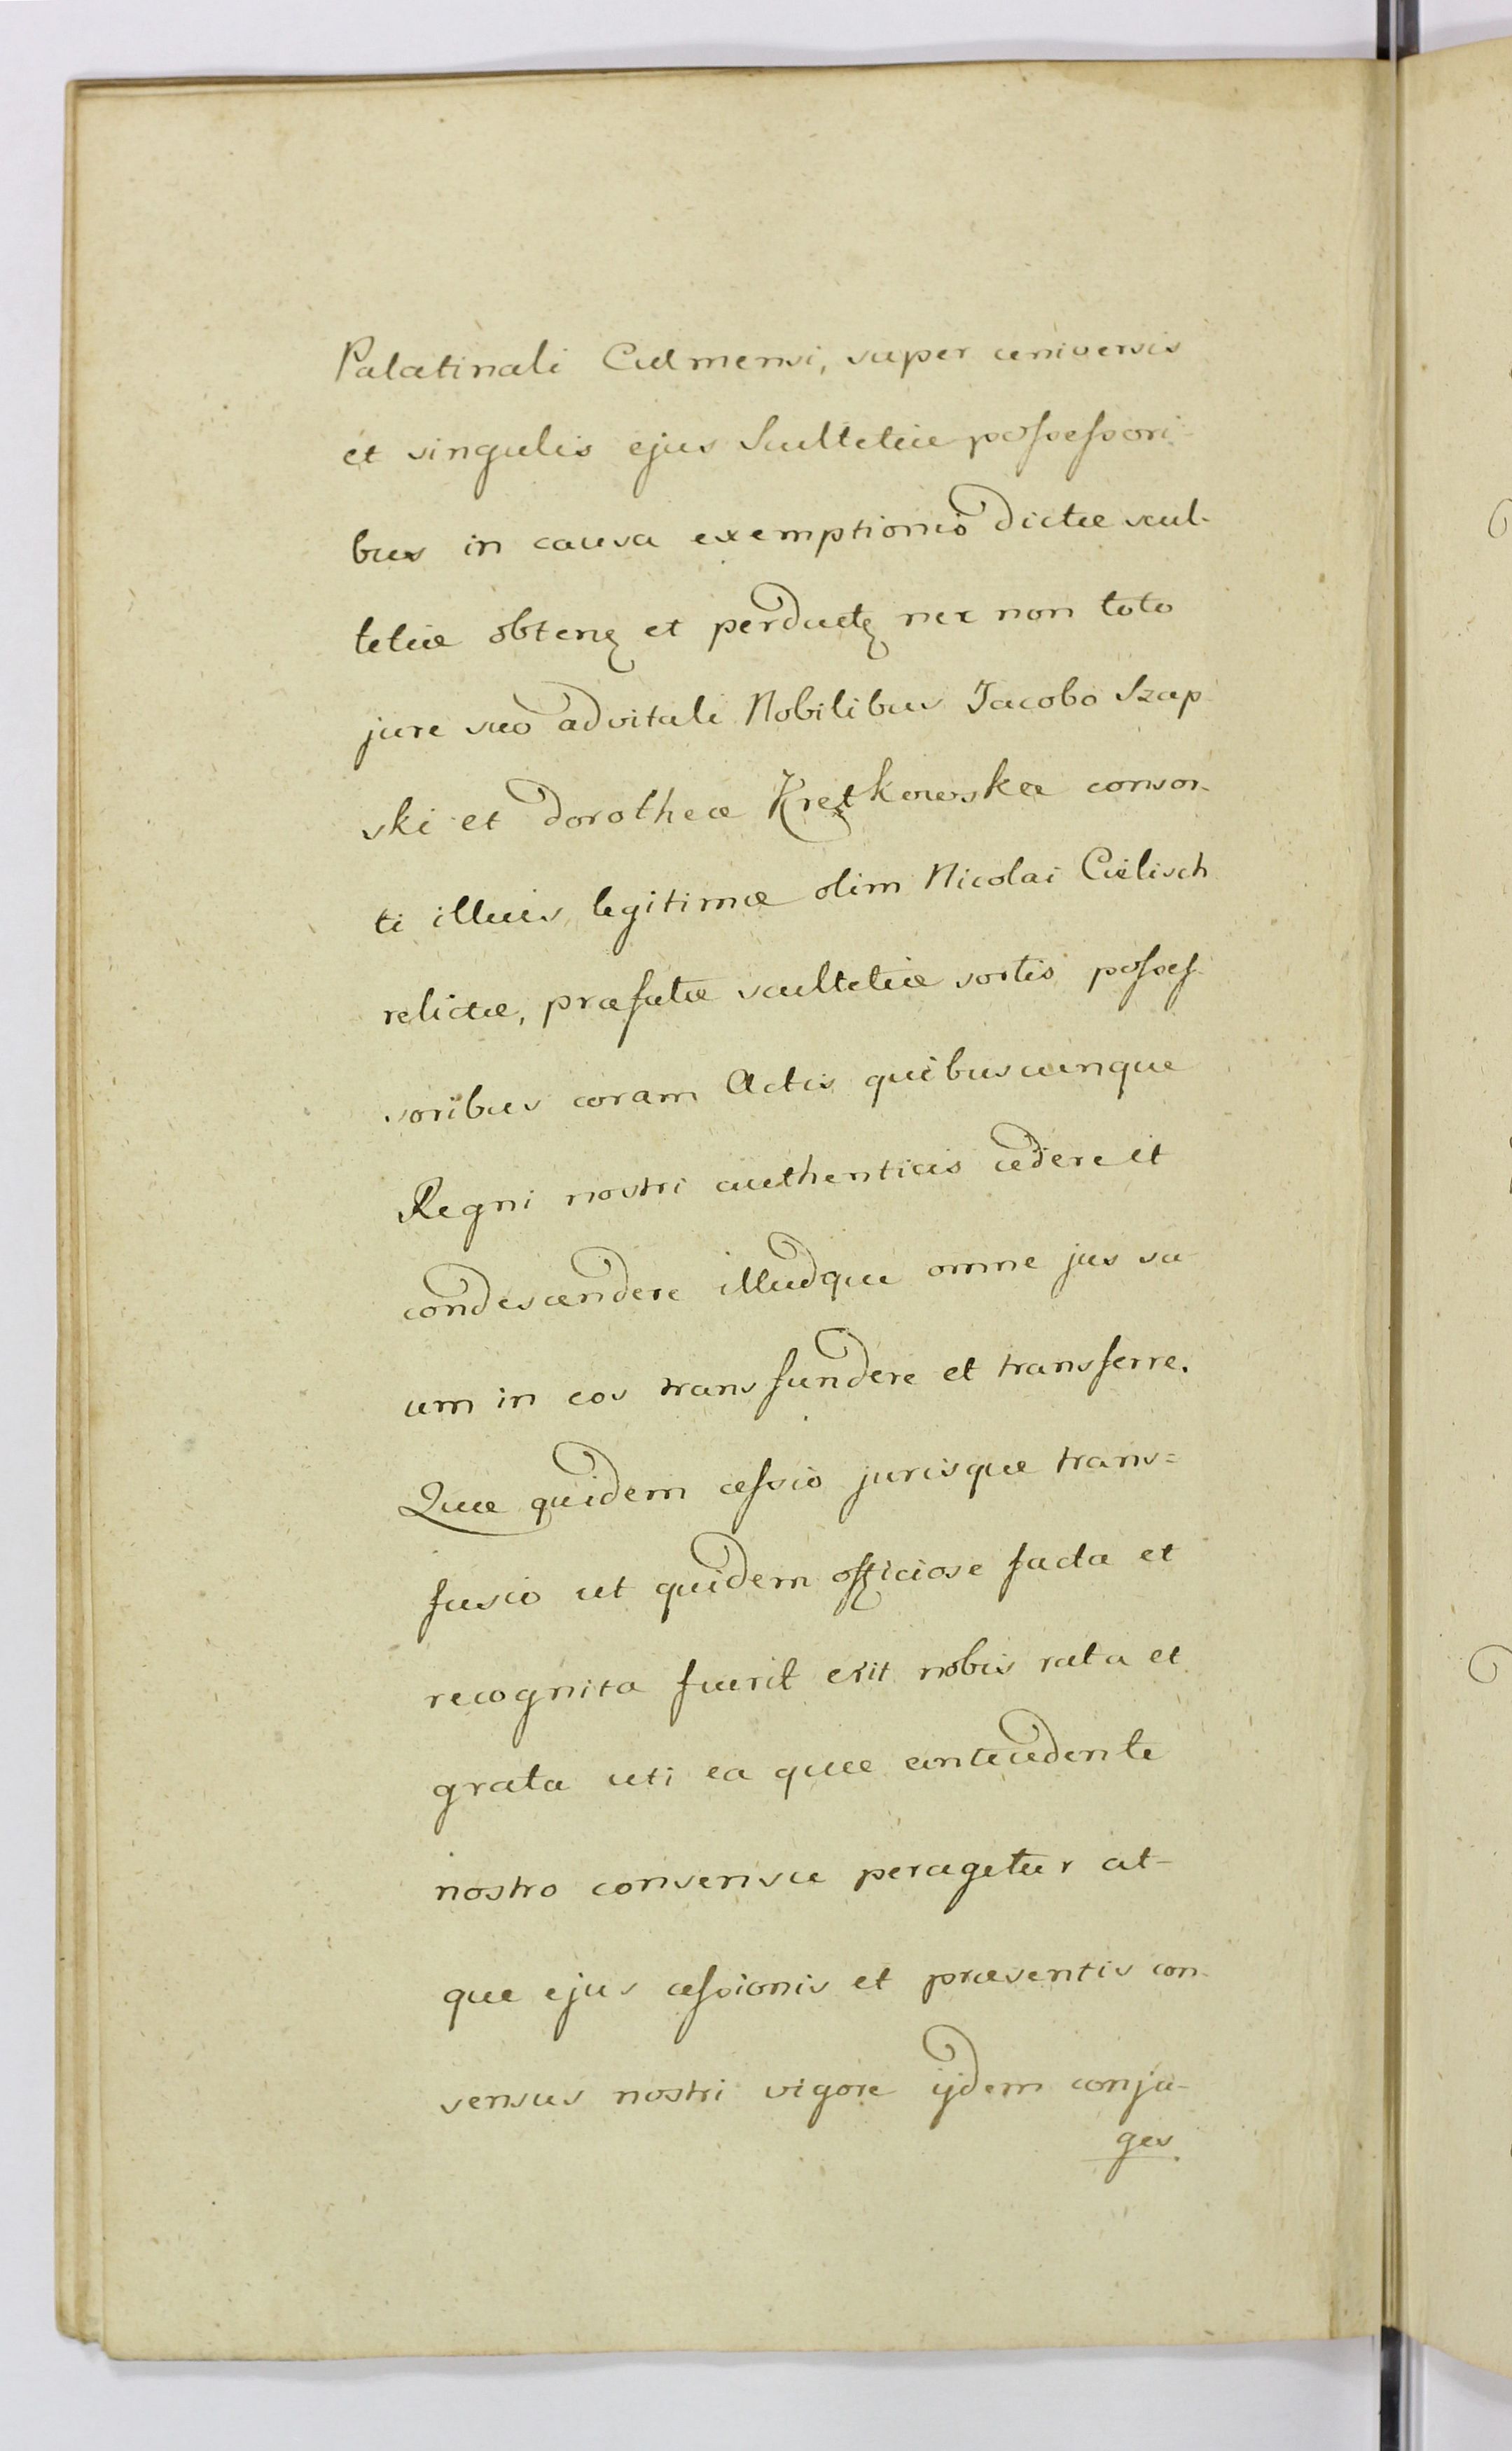 Palatinali Culmensi, super universis
et singulis ejus Scultetiæ possessori-
bus in causa exemptionis dictæ scul-
tetiæ obtenꝫ et perductꝫ nec non toto
jure suo advitali Nobilibus Jacobo Szap
ski et Dorotheæ Kretkowska consor-
ti illius legitimæ olim Nicolai Cielisch
relictæ, præfatæ scultetiæ sortis posses-
soribus coram Actis quibuscunque
Regni nostri authenticis cedere et
condescendere illudque omne jus su
um in eos transfundere et transferre.
Quæ quidem cessio jurisque trans=
fusio ut quidem officiose facta et
recognita fuerit erit nobis rata et
grata uti ea quæ antecedente
nostro consensu peragetur at-
que ejus cessionis et præsentis con-
sensus nostri vigore ijdem conju-
ges